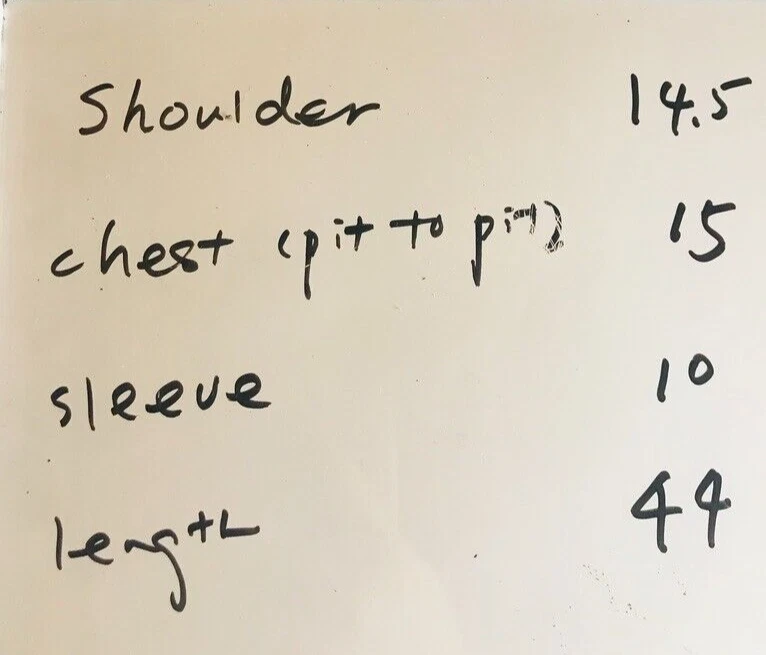 Shoulder 14.5
chest (pit to pit) 15
sleeve 10
length 44